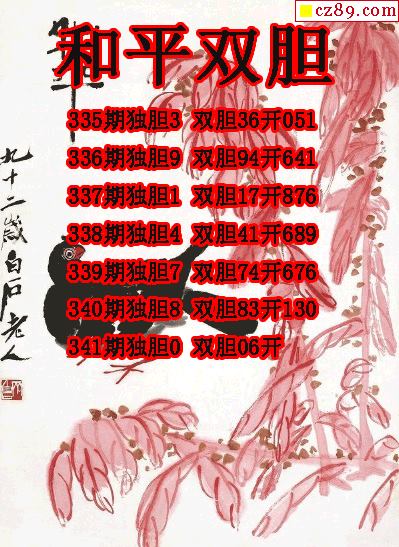 cz89.com
和平双胆
335期独胆3 双胆36开051
336期独胆9 双胆94开641
337期独胆1 双胆17开876
338期独胆4 双胆41开689
339期独胆7 双胆74开676
340期独胆8 双胆83开130
341期独胆0 双胆06开
九十二岁白石老人